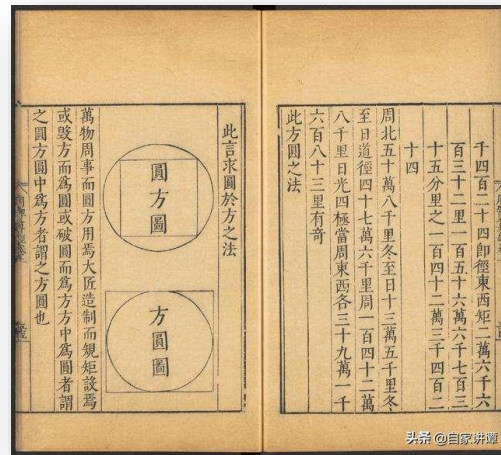 千四百二十四卽徑東西矩二萬六千六
百三十二里一百五十六萬六千七百三
十五分里之一百四十二萬三千四百二
十四
周北五十萬八千里冬至日十三萬五千里冬
至日道徑四十七萬六千里周一百四十二萬
八千里日光四極當周東西各三十九萬一千
六百八十三里有奇
此方圓之法
此言求圓於方之法
圓方圖
方圓圖
萬物周事而圓方用焉大匠造制而規矩設焉
或毀方而爲圓或破圓而爲方方中爲圓者謂
之圓方圓中爲方者謂之方圓也
头条 @自家讲谭